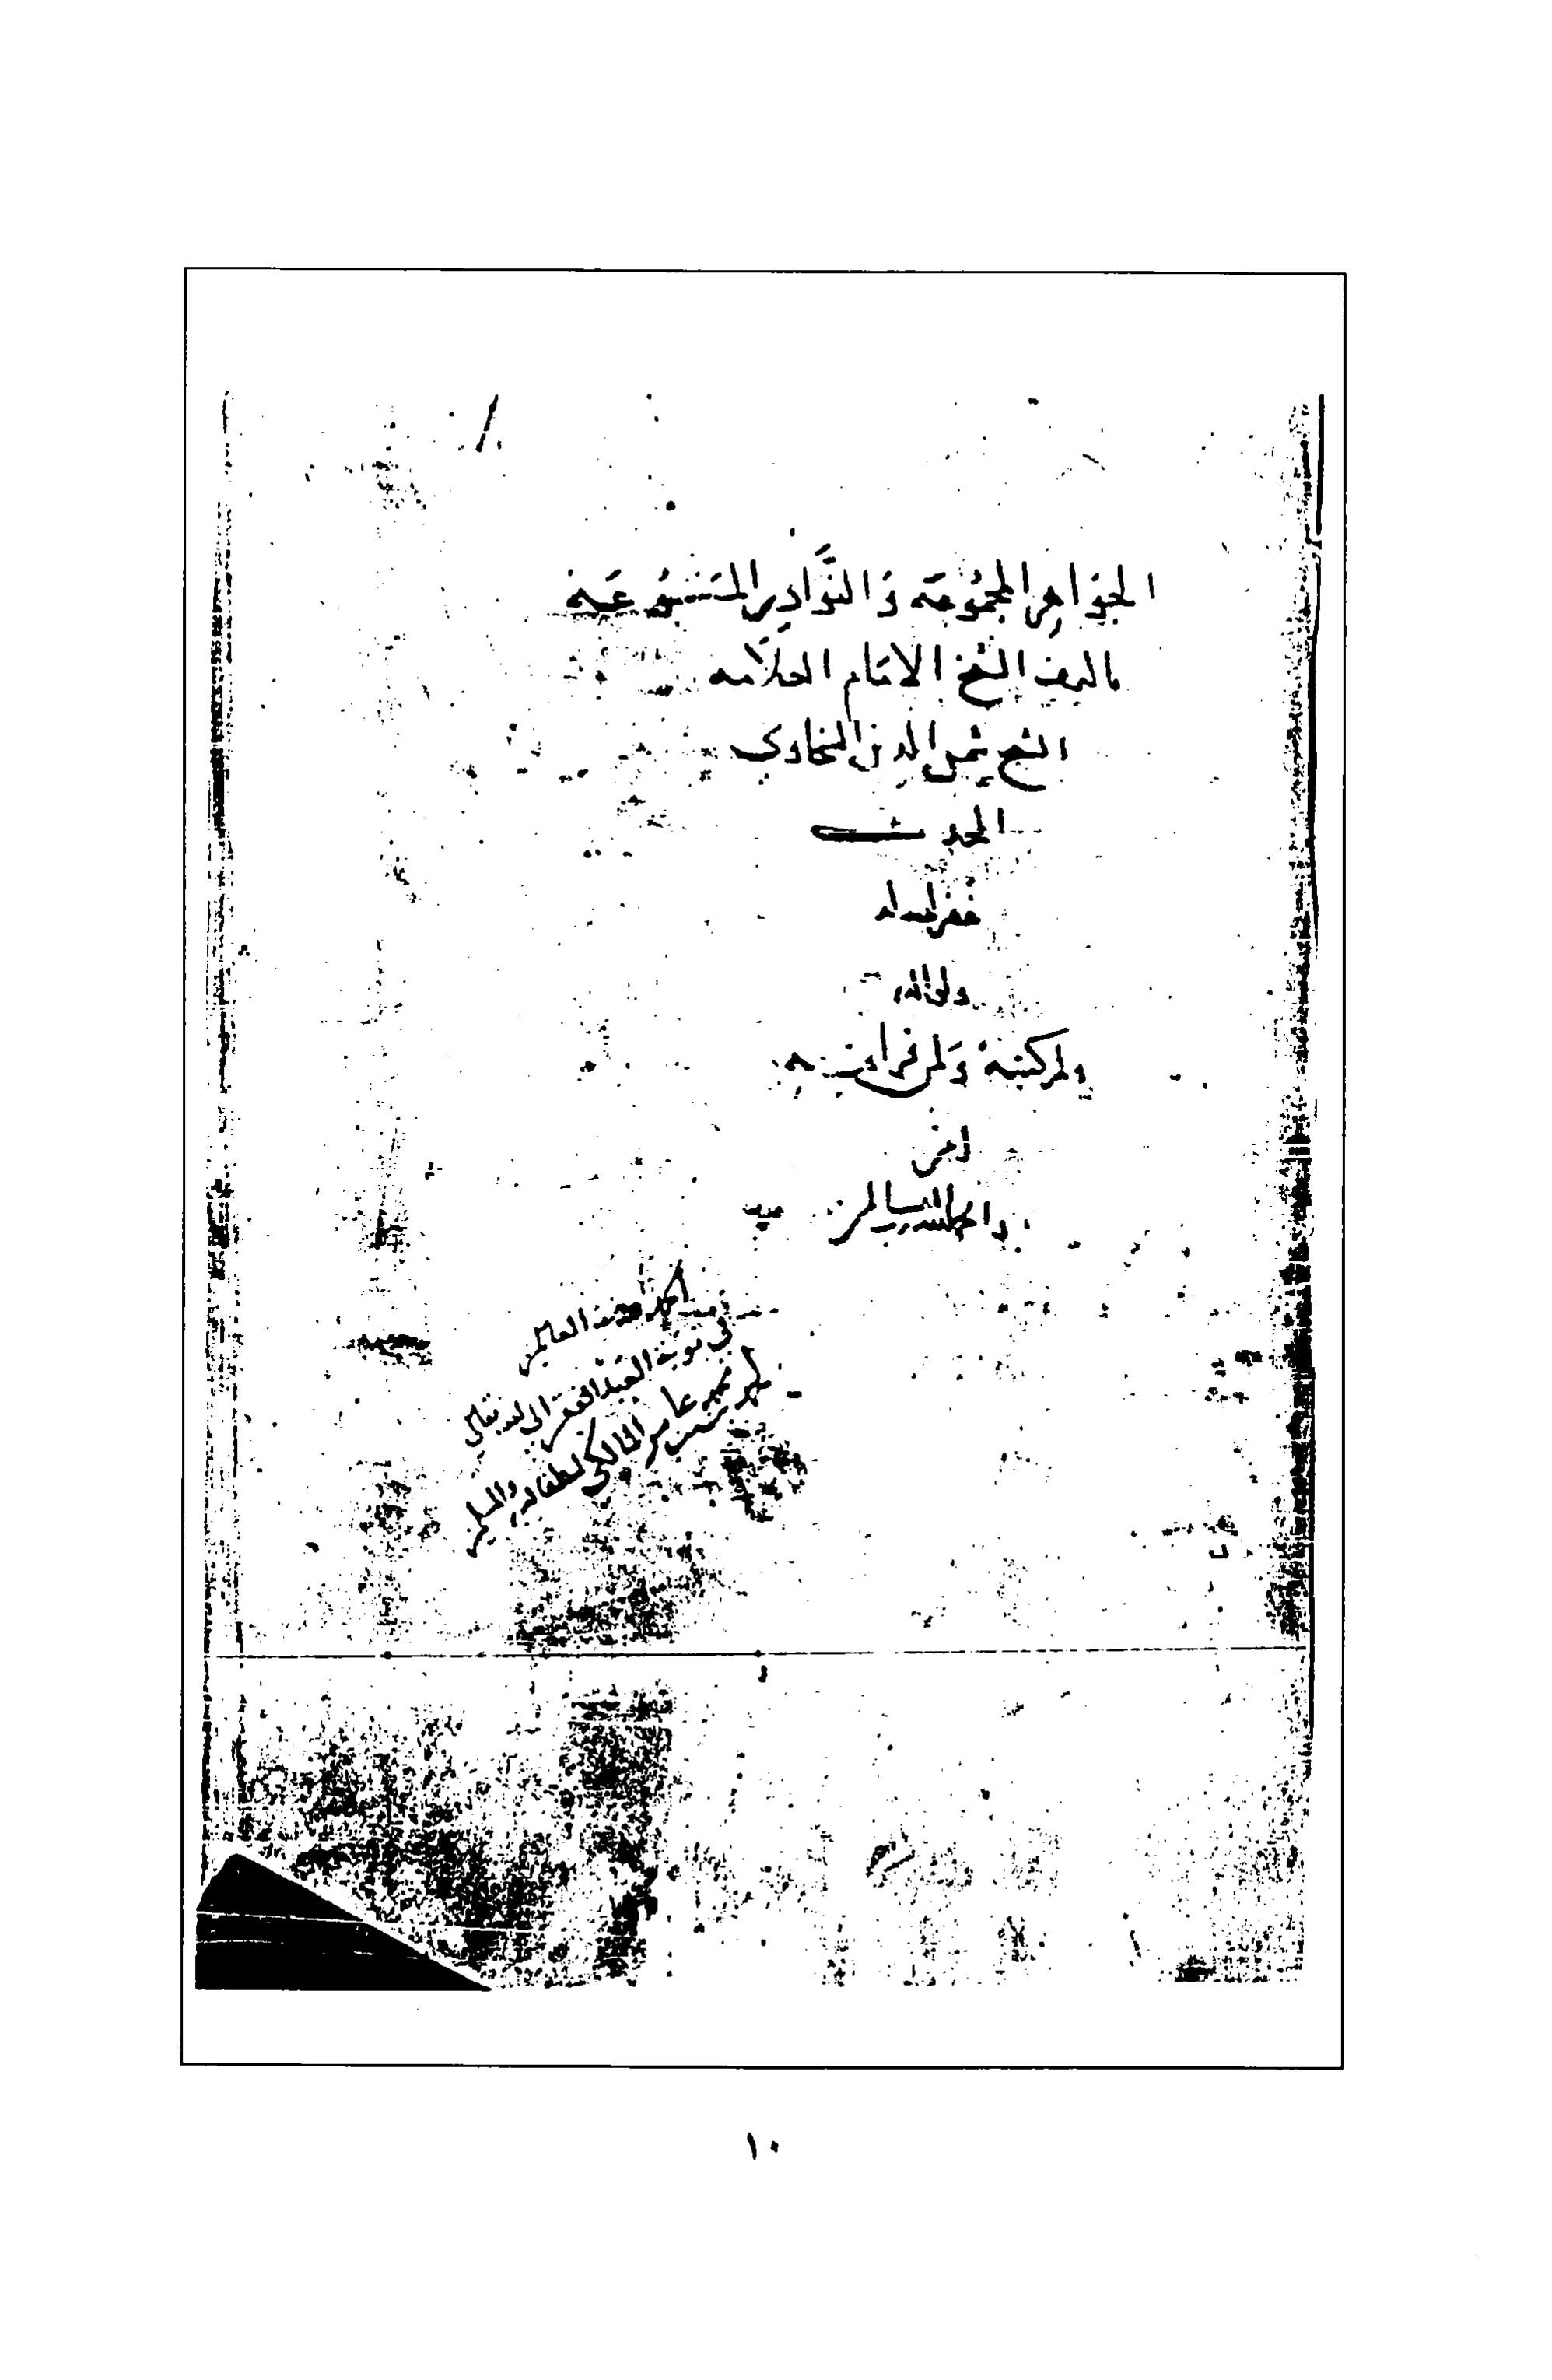 الجَوَاهِر المجمُوعَه وَالنَّوَادِر المَسْمُوعَه
تاليف الشيخ الامَام العلاَّمه
الشيخ شمس الدين السخاوي
المحدث
غفر الله له
ولوالديه
ولمن كتبهُ وَلمن قرا فيه
امين
والحمد لله رب العالمين
الحمد لله رب العالمين
في نوبة العَبد الفقير الى الله تعالى
عامر المالكي لطف الله به والمسلمين
١٠